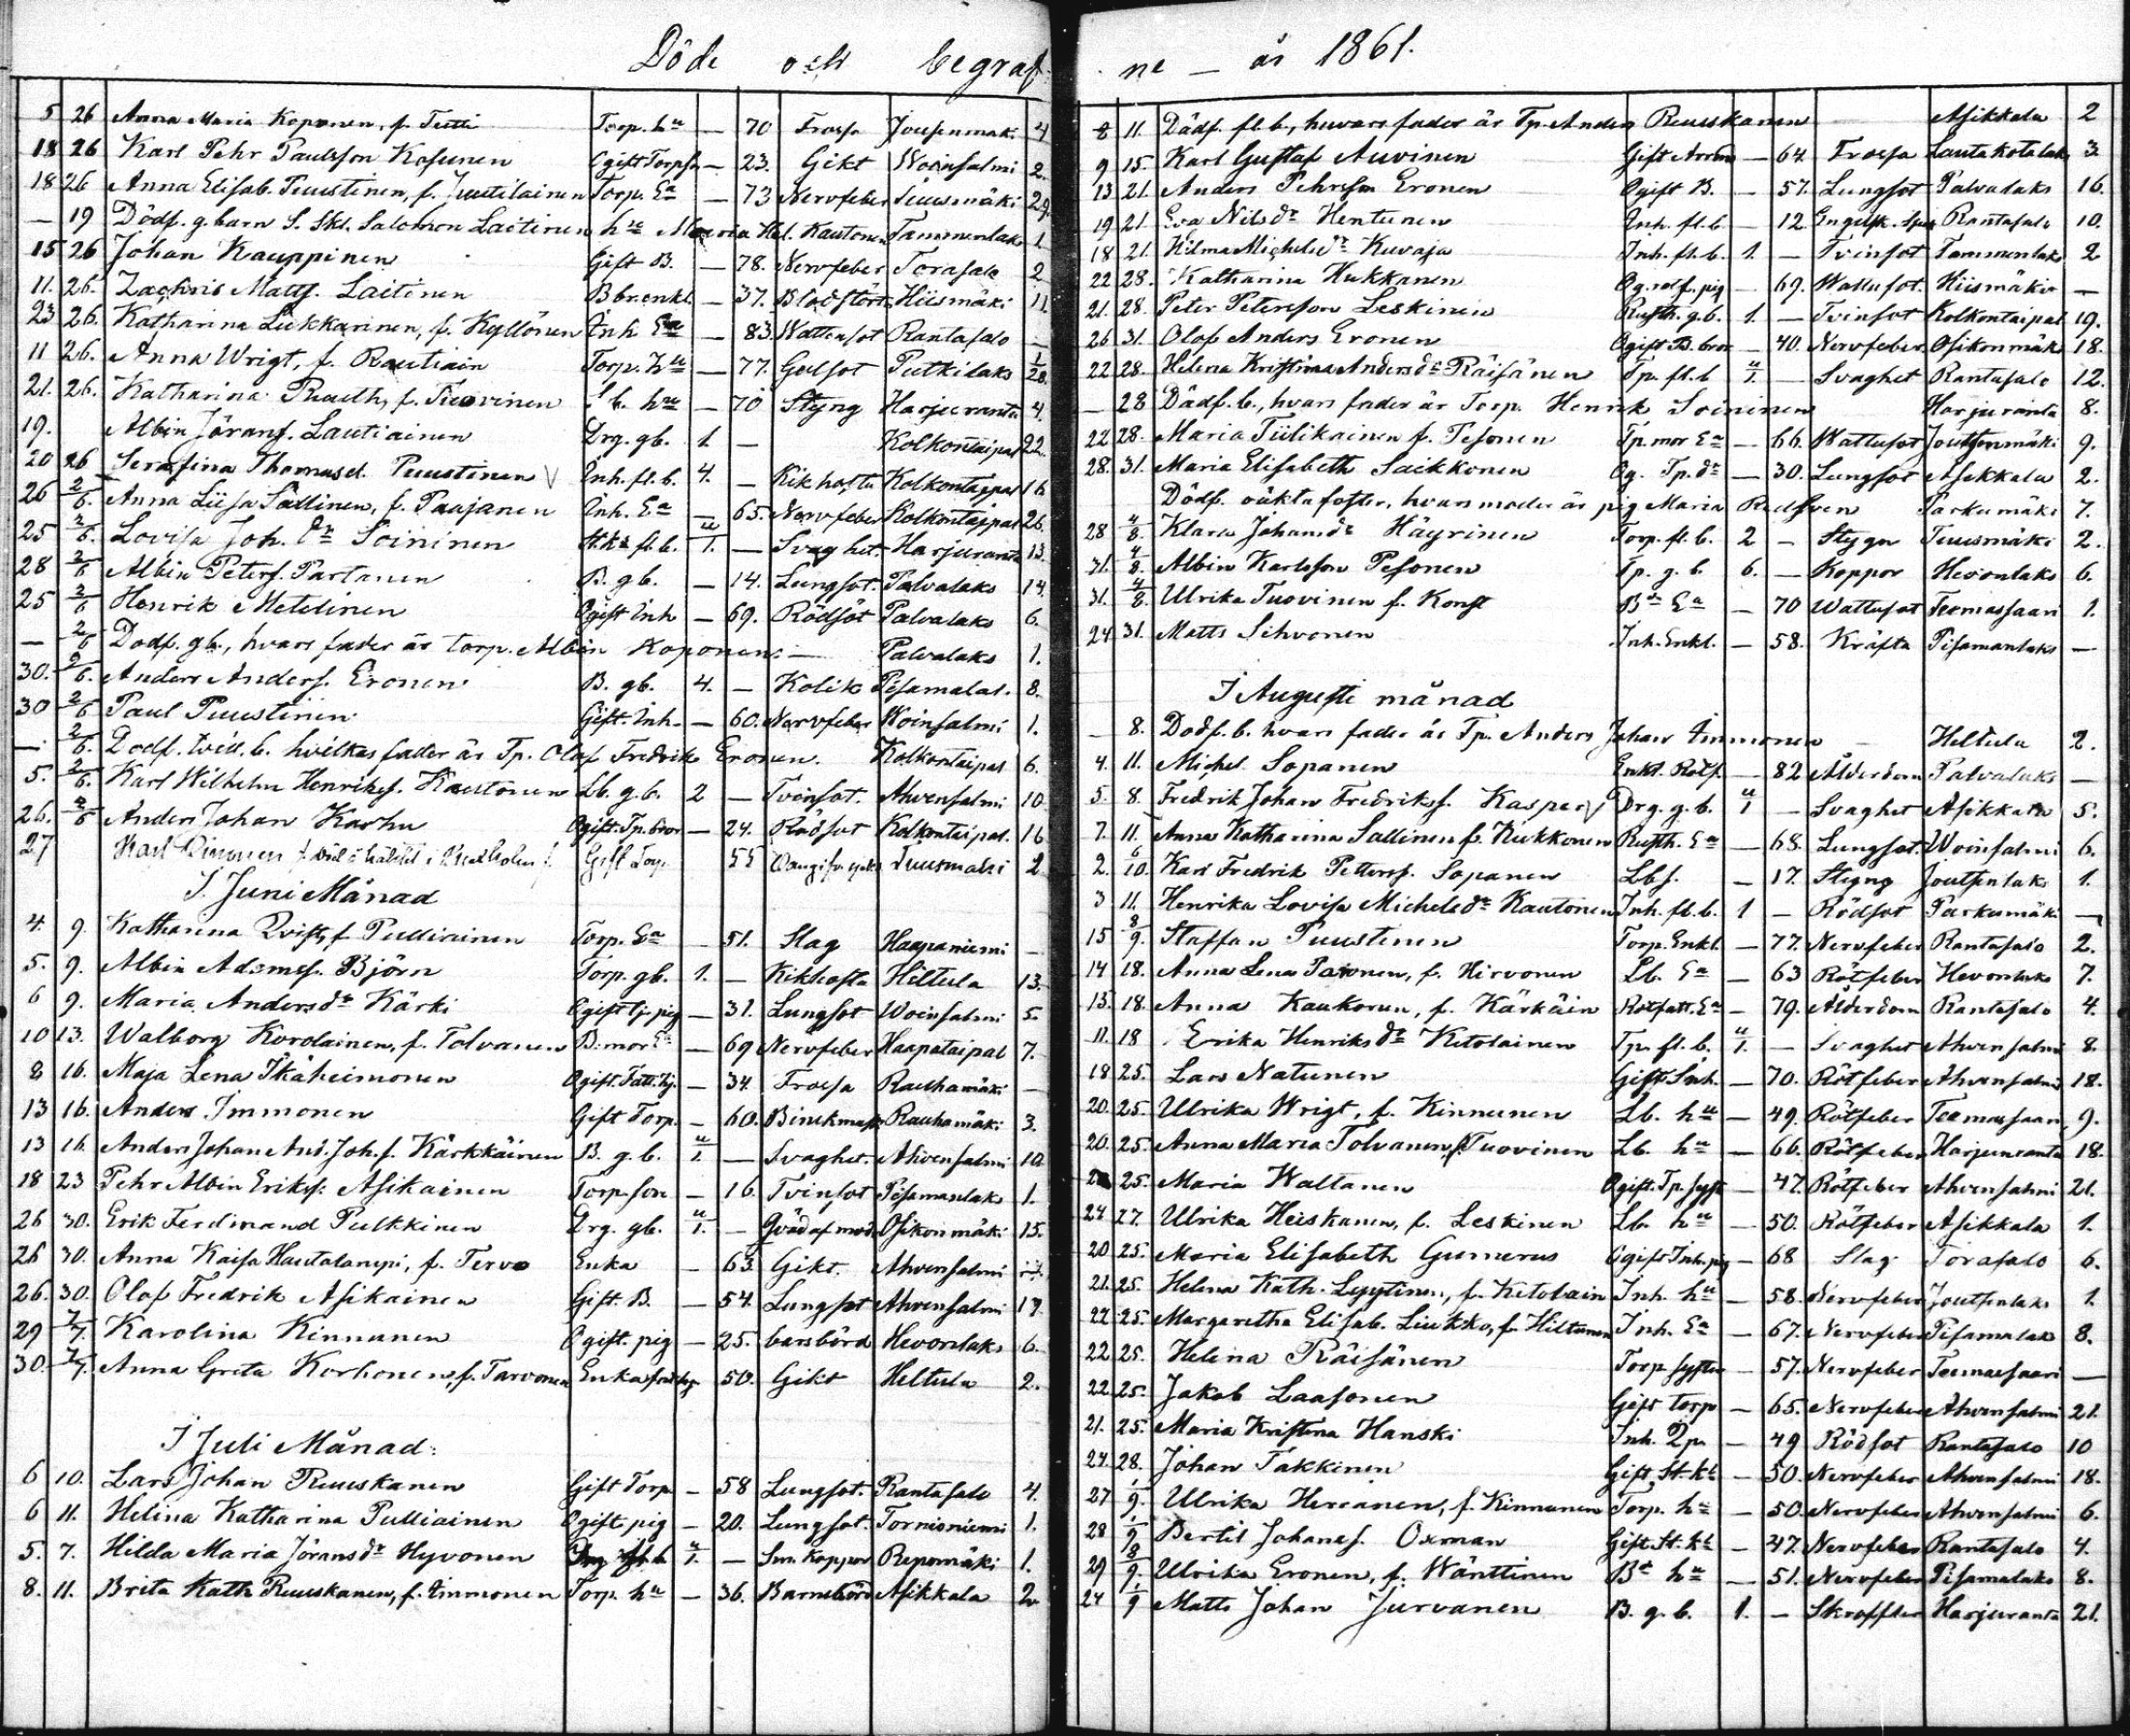 Döde och begraf- ne — år 1861.
5 26 Anna Maria Koponen, f. Tutti Torp. hu — 70 Frossa Joutsenmäki 4
18 26 Karl Pehr Paulsson Kosunen Ogift Torpson — 23. Gikt Woinsalmi 2.
18 26 Anna Elisab. Puustinen, f. Juutilainen Torp. Ea — 73 Nervfeber Tuusmäki 29.
— 19 Dödf. g. barn S. Skl. Salomon Laitinen hru Maria Hel. Kautonen Tammenlaks 1
15 26 Johan Kauppinen Gift B. — 78. Nervfeber Torasalo 2
11. 26. Zachris Matts. Laitinen B br. enkl. — 37. Blodstört. Hiismäki 11
23 26. Katharina Liikkarinen, f. Kyllönen Inh Ea — 83. Wattusot Rantasalo —
11 26. Anna Wrigt, f. Rautiain Torp. Hu — 77. Gulsot Putkilaks 1/28.
21. 26. Katharina Puuth, f. Tuovinen L b. hu — 70 Styng Harjuranta 4.
19. Albin Jöransf. Lautiainen Drg. gb. 1. — Kolkontaipal 22.
20 26 Serafina Thomasd. Puustinen Inh. fl. b. 4. — Kikhosta Kolkontaipal 16
26 2/6. Anna Liisa Sallinen, f. Paajanen Inh. Ea — 65. Nervfeber Kolkontaipal 26.
25 2/6. Lovisa Joh. dr Soininen St. ks fl. b. u/1. — Svaghet. Harjuranta 13.
28 2/6 Albin Petersf. Partanen B. gb. — 14. Lungsot. Palvalaks 14.
25 2/6 Henrik Metelinen Ogift Inh — 69. Rödsot Palvalaks 6.
— 2/6 Dodf. gb., hvars fader är torp. Albin Koponen. — Palvalaks 1.
30. 2/6. Anders Andersf. Eronen B. gb. 4. — Kolik Pisamalak. 8.
30 2/6 Paul Puustinen Gift. Inh. — 60. Nervfeber Woinsalmi 1.
— 2/6. Dodf. tvill. b. hvilkas fader är Tp. Olof Fredrik Eronen. Kolkontaipal 6.
5. 2/6. Karl Wilhelm Henriksf. Kautonen Lb. g. b. 2 — Tvinsot. Ahvensalmi 10
26. 2/6 Anders Johan Karhu Ogift. Tp. bror — 24. Rödsot Kolkontaipal. 16
27 Gift Torp. 55 Tuusmäki 2
I Juni Månad
4. 9. Katharina Qvist, f. Pulliainen Torp. Ea — 51. Slag Haapaniemi —
5. 9. Albin Adamsf. Björn Torp. gb. 1. — Kikhosta Hiltula 13.
6 9. Maria Andersdr Kärki Ogift tj. pig — 31. Lungsot Woinsalmi 5.
10 13. Walborg Korolainen, f. Tolvanen B: mor Ea — 69 Nervfeber Haapataipal 7.
8 16. Maja Lena Ikäheimonen Ogift. Fatt. hj. — 34. Frossa Rauhamäki —
13 16. Anders Immonen Gift Torp. — 60. Binikmask Rauhamäki 3.
13 16 Anders Johan And. Joh. f. Kärkkäinen B. g. b. u/1. — Svaghet. Ahvensalmi 10.
18 23 Pehr Albin Eriksf. Asikainen Torp. son — 16. Tvinsot Pisamanlaks 1.
26 30. Erik Ferdinand Pulkkinen Drg. gb. u/1. — Qväd af mod. Osikonmäki 15.
26 30. Anna Kaisa Hautalampi, f. Tervo Enka — 63. Gikt. Ahvensalmi
26. 30. Olof Fredrik Asikainen Gift. B. — 54. Lungsot Ahvensalmi 17.
29 7/7. Karolina Kinnunen Ogift. pig — 25. barsbörd Hevonlaks 6.
30. 7/7. Anna Greta Korhonen, f. Tarvonen Enka — 50. Gikt Hiltula 2.
I Juli Månad:
6 10. Lars Johan Ruuskanen Gift Torp — 58 Lungsot. Rantasalo 4.
6 11. Helina Katharina Pulliainen Ogift pig — 20. Lungsot. Tornioniemi 1.
5. 7. Hilda Maria Jöransdr Hyvonen u/1. — Sm. koppor Repomäki 1.
8. 11. Brita Kath Ruuskanen, f. Immonen Torp. hu — 36. Barnsbörd Asikkala 2.
8 11. Dödf. fl. b., huvars fader är Tp. Anders Ruuskanen Asikkala 2
9 15. Karl Gustaf Auvinen Gift — 64. Frossa Lautakotalaks 3.
13 21. Anders Pehrsson Eronen Ogift B. — 57. Lungsot Palvalaks 16.
19 21. Eva Nilsdr Hentunen Inh. fl. b. — 12. Engelsk. sjuk Rantasalo 10.
18 21. Hilma Michelsdr Kuvaja Inh. fl. b. 1. — Tvinsot Tammenlaks 2
22 28. Katharina Hukkanen Og. rotf. pig — 69. Wattusot. Hiismäki —
21. 28. Peter Petersson Leskinen Rusth. g. b. 1. — Tvinsot Kolkontaipal 19.
26 31. Olof Anders Eronen Ogift B. bror — 40. Nervfeber Osikonmäki 18.
22 28. Helena Kristina Andersdr Räisänen Tp. fl. b u/1. — Svaghet Rantasalo 12.
— 28 Dädf. b., hvars fader är Torp. Henrik Soininen Harjuranta 8.
22 28. Maria Tiilikainen f. Pesonen Tp. mor Ea — 66. Wattusot Joutsenmäki 9.
28. 31. Maria Elisabeth Saikkonen Og. Tp. dr — 30. Lungsot Asikkala 2.
Dödf. oäkta foster, hvars moder är pig Maria Parkumäki 7.
28 4/8. Klara Johansdr Häyrinen Torp. fl. b. 2 — Stygn Tuusmäki 2.
31. 4/8. Albin Karlsson Pesonen Tp. g. b. 6. — Koppor Hevonlaks 6.
31. 4/8. Ulrika Tuovinen f. Konst Bde Ea — 70 Wattusot Teemassaari 1.
24 31. Matts Sihvonen Inh. Enkl. — 58. Kräfta Pisamanlaks —
I Augusti månad
— 8. Dodf. b. hvars fader är Tp. Anders Johan Immonen — Hiltula 2.
4. 11. Michel Sopanen Enkl. Rotf. — 82 Ålderdom Palvalaks —
5. 8. Fredrik Johan Fredriksf. Kasper Drg. g. b. u/1 — Svaghet Asikkala 5.
7. 11. Anna Katharina Sallinen f. Kukkonen Rusth. Ea — 68. Lungsot. Woinsalmi 6.
2. 6/10. Karl Fredrik Pettersf. Sopanen Lbf. — 17. Stygng Joutsenlaks 1.
3 11. Henrika Lovisa Michelsdr Kautonen Inh. fl. b. 1 — Rödsot Parkumäki —
15 8/9. Staffan Puustinen Torp. Enkl. — 77. Nervfeber Rantasalo 2.
14 18. Anna Lena Paronen, f. Hirvonen Lb. Ea — 63 Rötfeber Hevonlaks 7.
15. 18. Anna Kaukorun, f. Kärkäin Rotfatt. Ea — 79. Ålderdom Rantasalo 4.
11. 18 Erika Henriksdr Ketolainen Tp. fl. b. u/1. — Svaghet Ahvensalmi 8.
18 25. Lars Natunen Gift Inh. — 70. Rötfeber Ahvensalmi 18.
20. 25. Ulrika Wrigt, f. Kinnunen Lb. hu — 49. Rötfeber Teemassaari 9.
20. 25. Anna Maria Tolvanen, f. Tuovinen Lb. hu — 66. Rötfeber Harjunranta 18.
25. Maria Waltanen Ogift. Tp. syst — 47. Rötfeber Ahvensalmi 21.
24 27. Ulrika Heiskanen, f. Leskinen Lb. hu — 50. Rötfeber Asikkala 1.
20 25. Maria Elisabeth Gumerus Ogift Inh. pig — 68 Slag Torasalo 6.
21. 25. Helena Kath. Lyytinen, f. Ketolain Inh. hu — 58. Nervfeber Joutsenlaks 1.
22 25. Margaretha Elisab. Liukko, f. Hiltunen Inh. Ea — 67. Nervfeber Pisamalaks 8.
22 25. Helena Räisänen Torp syster — 57. Nervfeber Teemassaari —
22 25. Jakob Laasonen Gift torp — 65. Nervfeber Ahvensalmi 21.
21. 25. Maria Kristina Hanski Inh. Qp. — 49 Rödsot Rantasalo 10
24. 28. Johan Takkinen Gift St. kl — 50. Nervfeber Ahvensalmi 18.
27 1/9. Ulrika Herranen, f. Kinnunen Torp. hu — 50. Nervfeber Ahvensalmi 6.
28 1/9 Bertil Johansf. Oxman Gift. St. kl — 47. Nervfeber Rantasalo 4.
29 8/9. Ulrika Eronen, f. Wänttinen Bde hu — 51. Nervfeber Pisamalaks 8.
24 1/9 Matts Johan Jurvanen B. g. b. 1. — Skroffler Harjuranta 21.